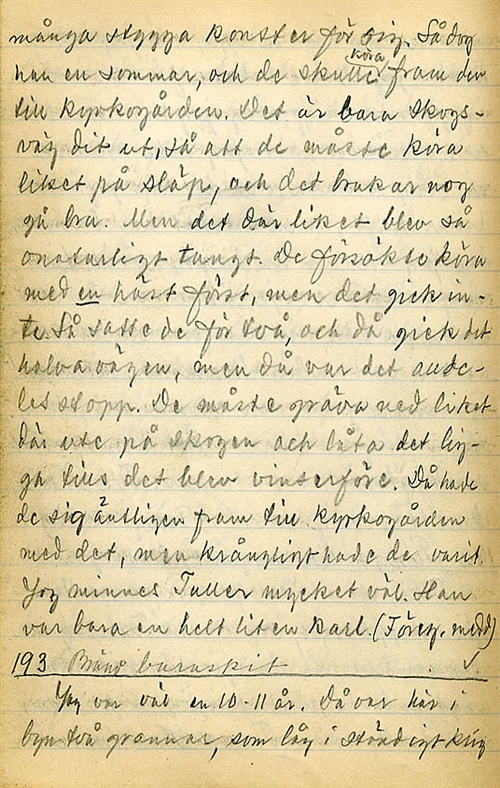 många stygga konster för sig. Så dog
han en sommar, och de skulle köra fram den
till kyrkogården. Det är bara skogs-
väg dit ut, så att de måste köra
liket på släp, och det brukar nog
gå bra. Men det där liket blev så
onaturligt tungt. De försökte köra
med en häst först, men det gick in-
te. Så satte de för två, och då gick det
halva vägen, men då var det alldc-
les stopp. De måste gräva ned liket
där ute på skogen och låta det lig-
ga tills det blev vinterföre. Då hade
de sig äntligen fram till kyrkogården
med det, men krångligt hade de varit.
Jag minnes Tuller mycket väl. Han
var bara en helt liten karl. (Föreg. medd)
193 Bränd barnskit ✓
Jag var väl en 10-11 år. Då var här i
byn två grannar, som låg i ständigt krig